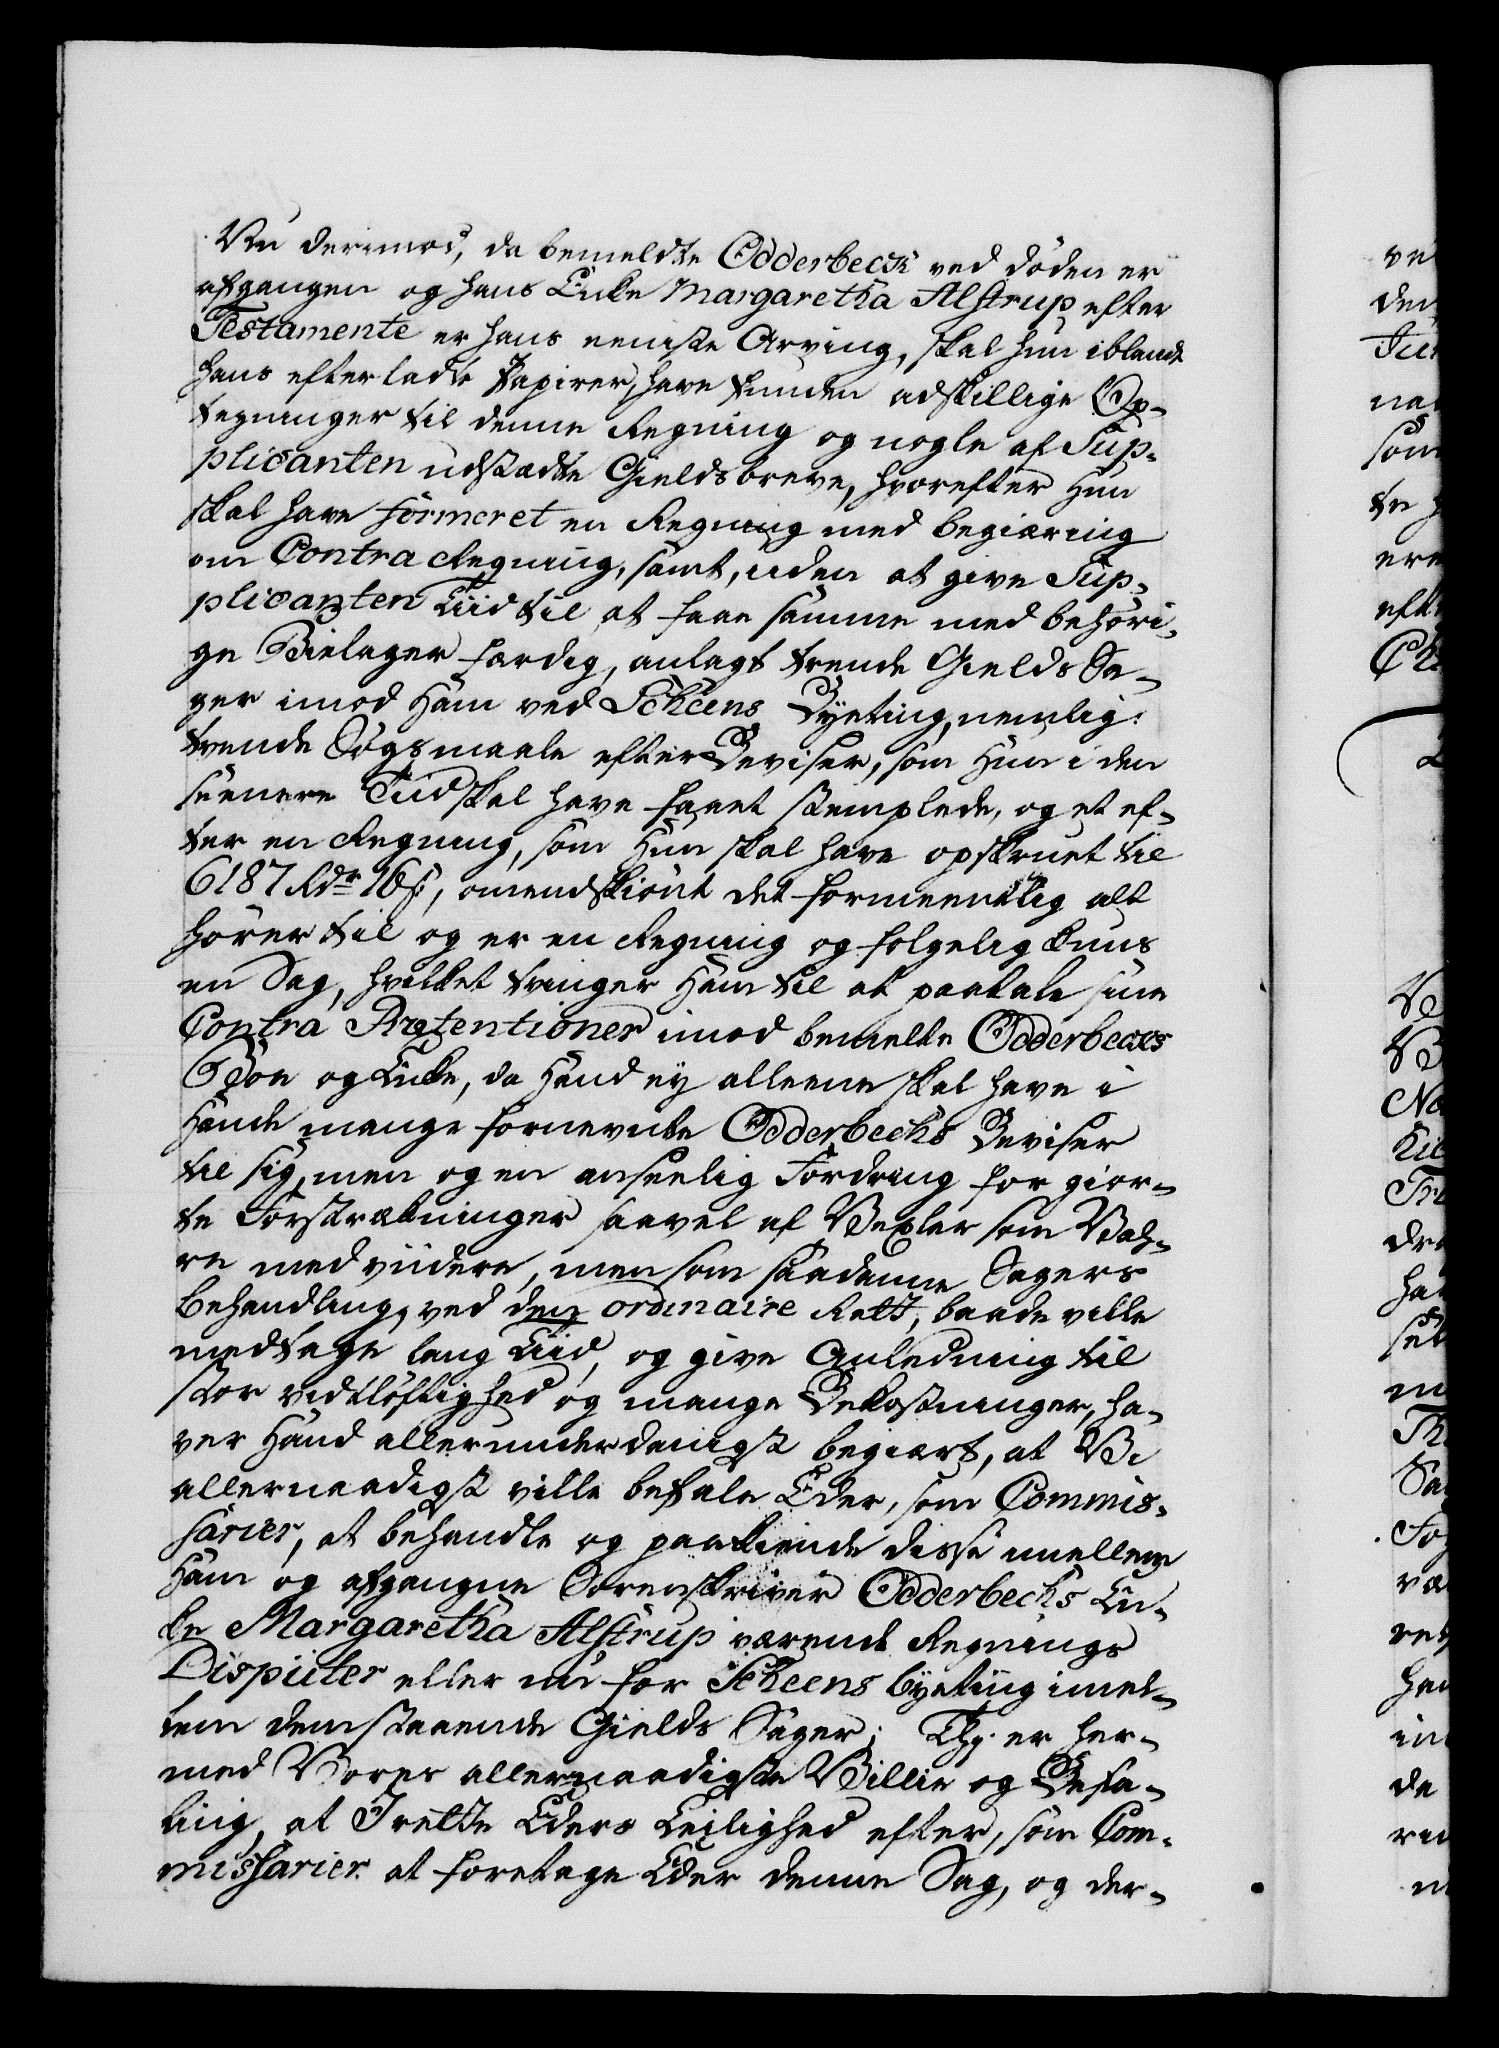 Nu derimod, da bemeldte Odderbeck ved døden er
afgangen og hans Encke Margaretha Alstrup efter
Testamente er hans eeniste Arving, skal hun iblandt
hans efterladte Papirer, have funden adskillige Op-
tegninger til denne Regning og nogle af Sup-
plicanten udstædte Gieldsbreve, hvorefter Hun
skal have formeret en Regning med begiæring
om Contra Regning, samt, uden at give Sup-
plicanten Tiid til at faae samme med behöri-
ge Bielager færdig, anlagt trende Gields Sa-
ger imod Ham ved Scheens Byeting, nemlig:
trende Søgsmaale efter Beviser, som Hun i den
siienere Tiid skal have faaet stemplede, og et ef-
ter en Regning, som Hun skal have opskruet til
6187 Rdr 16 s, omendskiönt det formeentlig alt
hörer til og er en Regning og følgelig kuns
en Sag, hvilket tvinger Ham til at paatale sine
Contra Prætentioner imod bemelte Odderbecks
Boe og Encke, da Hand ey alleene skal have i
Hände mange fornevnte Odderbechs Beviser
til sig, men og en anseelig Fordring for giör-
te Forstrækninger saavel af Vexler som Vah-
re med viidere, men som saadanne Sagers
behandling, ved den ordinaire Rett, baade ville
medtage lang Tiid, og give Anledning til
stor vidtløftighed og mange Bekostninger, ha-
ver Hand allerunderdanigst begiært, at Vi
allernaadigst ville befale Eder, som Commis-
sarier, at behandle og paakiende disse imellem
Ham og afgangne Sorenskriver Odderbechs En-
ke Margaretha Alstrup værende Regnings
Dispüter eller nu for Scheens byeting imel-
lem dem staaende Gields Sager; Thj er her-
med Vores allernaadigste Villie og Befa-
ling, at I rette Eders Leilighed efter, som Com-
missarier at foretage Eder denne Sag, og der-